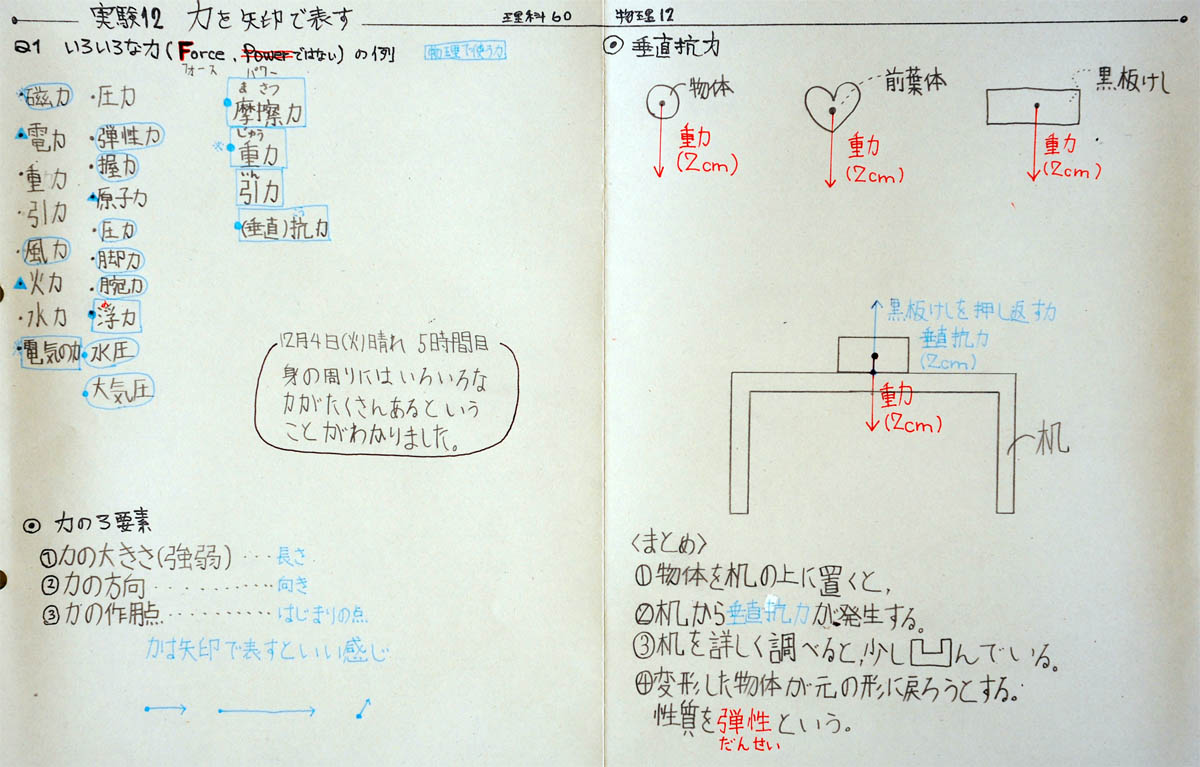 実験12 力を矢印で表す
理科60
Q1 いろいろな力(Force、Powerではない)の例
フォース パワー
物理で使う力
・磁力
・電力
・重力
・引力
・風力
・火力
・水力
・電気の力
・圧力
・弾性力
・握力
・原子力
・圧力
・脚力
・腕力
・浮力
・水圧
・大気圧
まさつ
摩擦力
じゅう
重力
いん
引力
(垂直)抗力
12月4日(火)晴れ 5時間目
身の周りにはいろいろな
力がたくさんあるという
ことがわかりました。
◎ 力の3要素
①力の大きさ(強弱)・・・長さ
②力の方向・・・・・・・・・・向き
③力の作用点・・・・・・・・・・はじまりの点
力は矢印で表すといい感じ
物理12
◎ 垂直抗力
物体
重力
(2cm)
前葉体
重力
(2cm)
黒板けし
重力
(2cm)
黒板けしを押し返す力
垂直抗力
(2cm)
重力
(2cm)
机
〈まとめ〉
①物体を机の上に置くと,
②机から垂直抗力が発生する。
③机を詳しく調べると,少し凹んでいる。
④変形した物体が元の形に戻ろうとする。
性質を弾性という。
だんせい